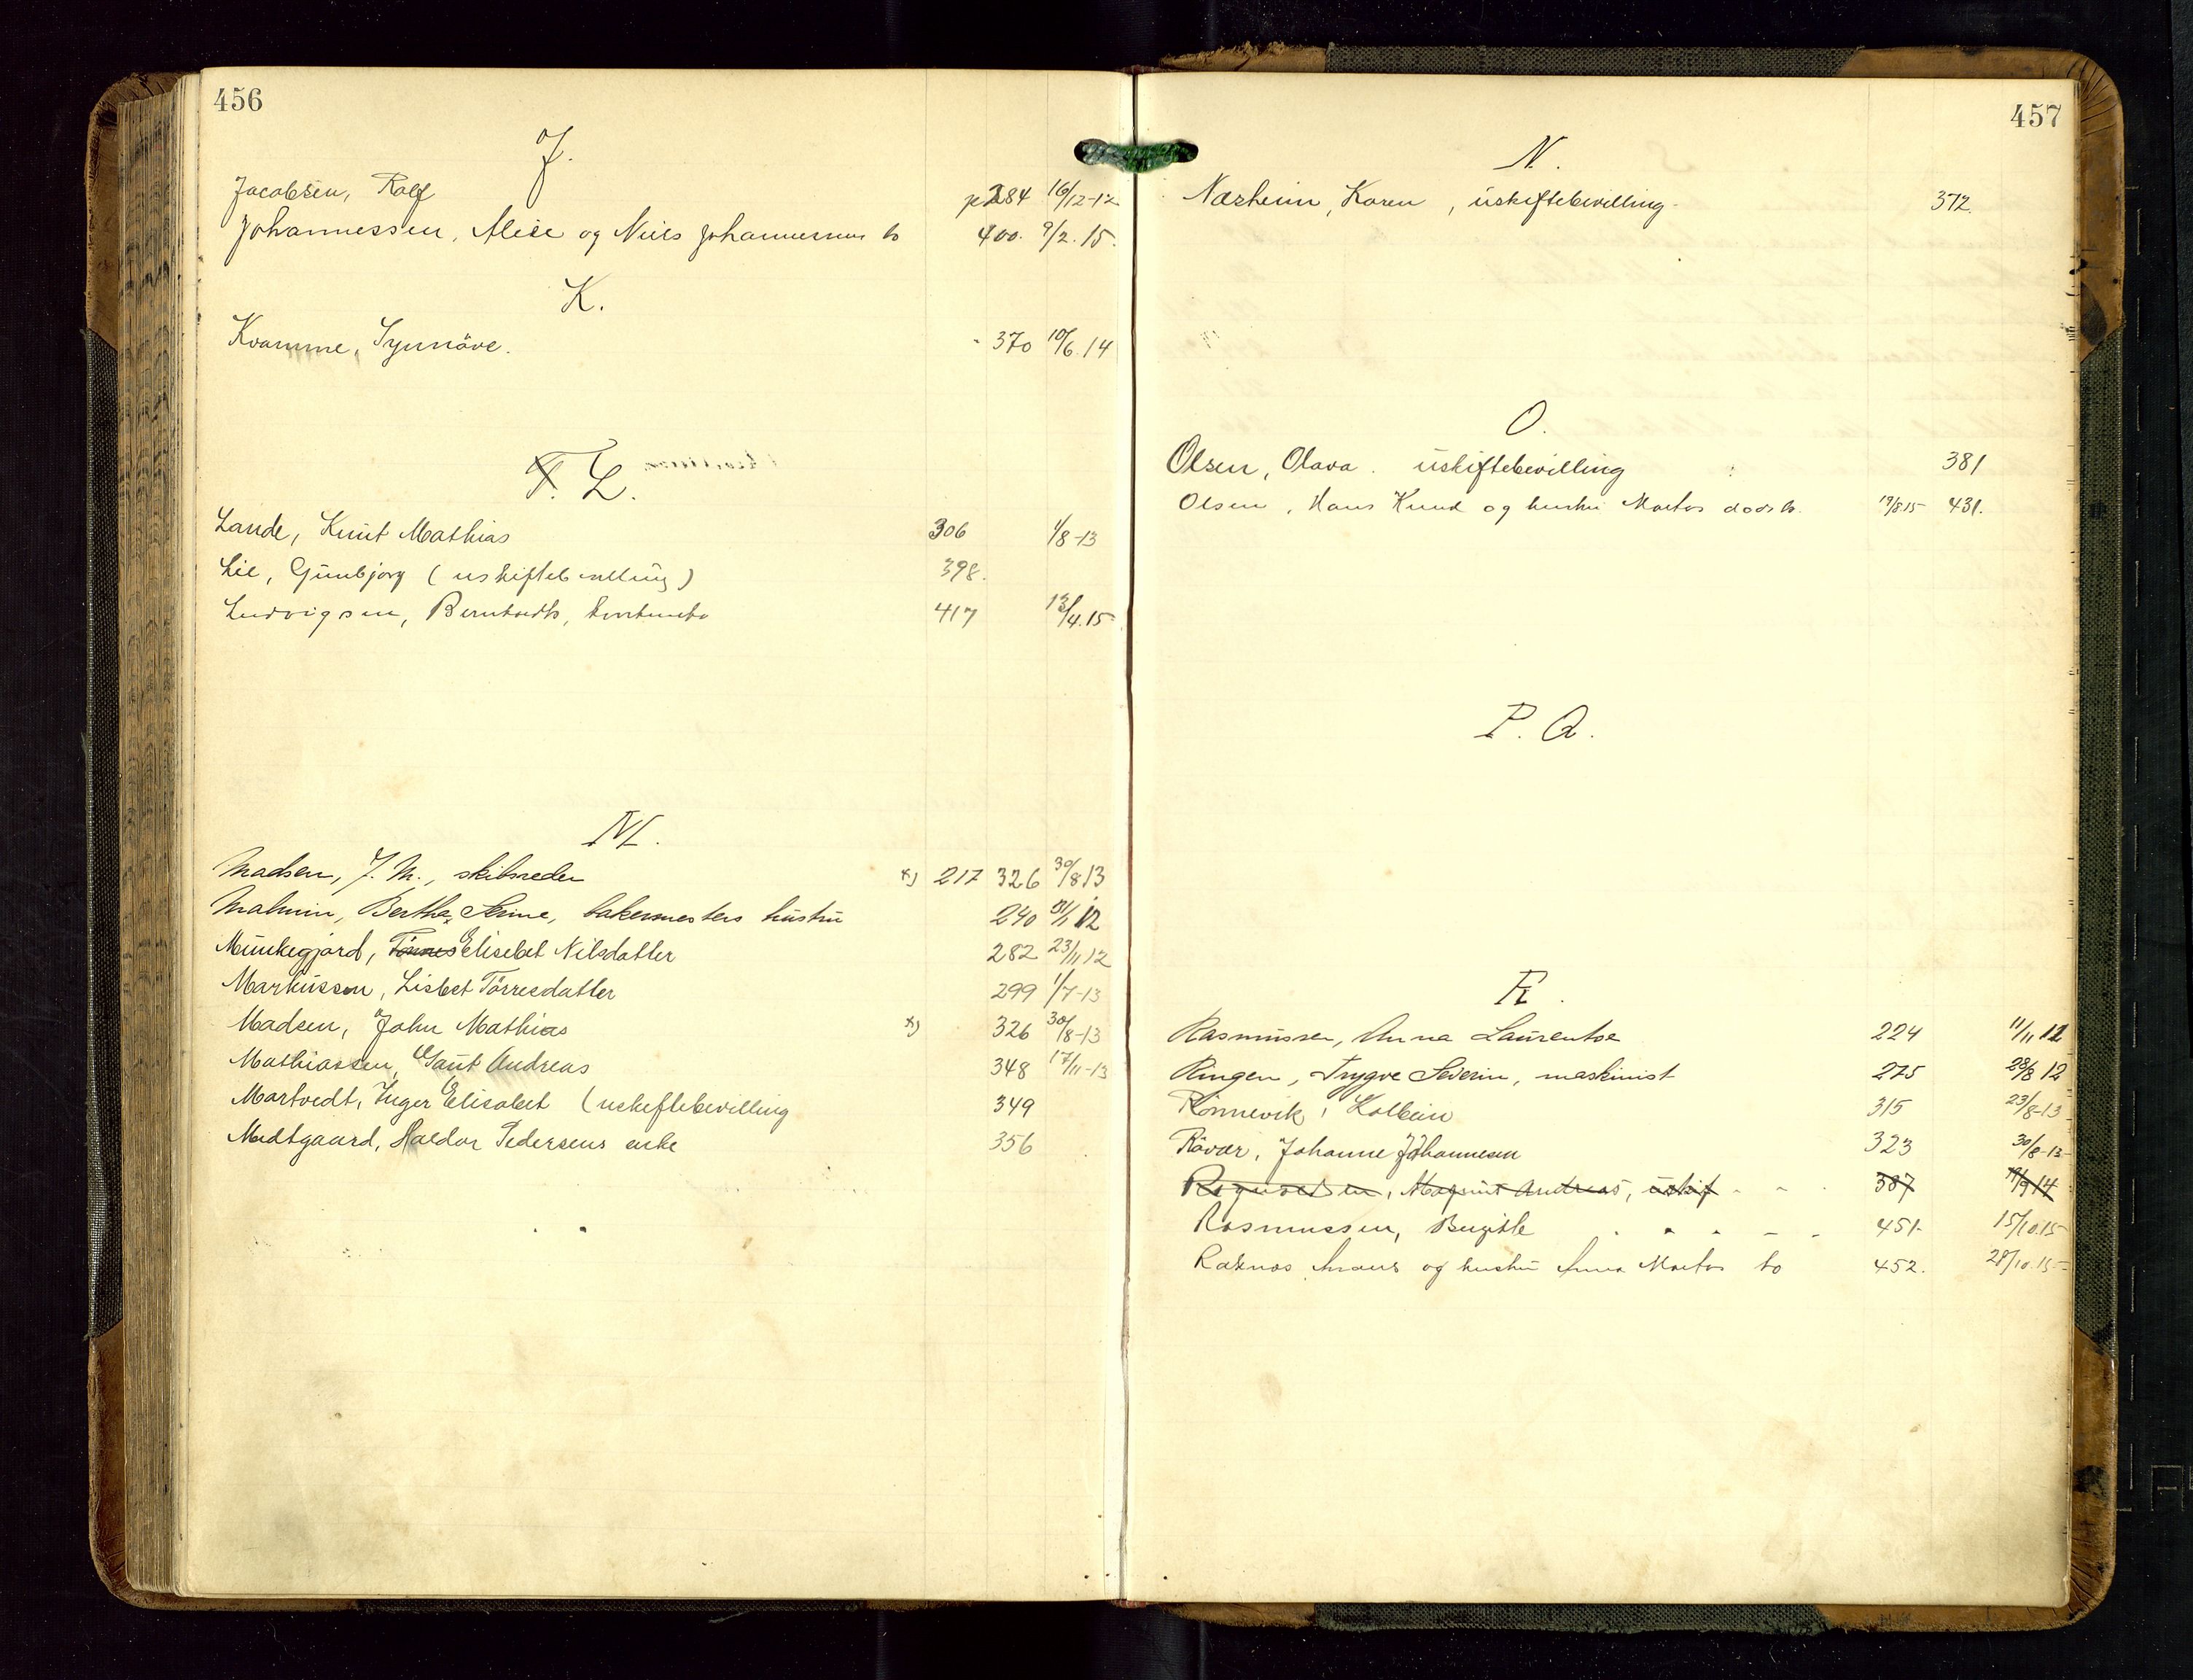 456
J.
Jacobsen, Rolf p 284 16/12-12
Johannessen, Alise og Niels Johannessens bo 400. 9/2. 15.
K.
Kvamme, Synnöve. 370 10/6. 14
F. L.
Lande, Knut Mathias 306 1/8-13
Lie, Gunbjorg (uskiftebevilling) 398.
Ludvigsen, Berntsedts, 417 13/4.15
M.
Madsen, J. M., skibsreder x) 217 326 30/8 13
Malmin, Bertha Serine, bakermesters hustru 240 31/1 12
Munkegjord, Tönnes Elisebet Nilsdatter 282 23/11 12
Markussen, Lisbet Törresdatter 299 1/7-13
Madsen, John Mathias x) 326 30/8-13
Mathiassen, Gaut Andreas 348 17/11-13
Martvedt, Inger Elisabet (uskiftebevilling 349
Midtgaard, Haldor Pedersens enke 356
457
N.
Nærheim, Karen, uskiftebevilling 372.
O.
Olsen, Olava. uskiftebevilling 381
Olsen, Hans Knud og hustru Martas dødsbo. 19/8 15 431.
P. Q.
R.
Rasmussen, Anna Laurentse 224 11/11 12
Ringen, Trygve Severin, maskinist 275 28/8 12
Rönnevik, Kolbein 315 23/8-13
Rövær, Johanne Johannesen 323 30/8-13
Magnus Andreas, uskif - - 387 19/9 14
Rasmussen, Birgitte - - 451 15/10.15
Raknes og hustru Anna Martas bo 452. 28/10.15